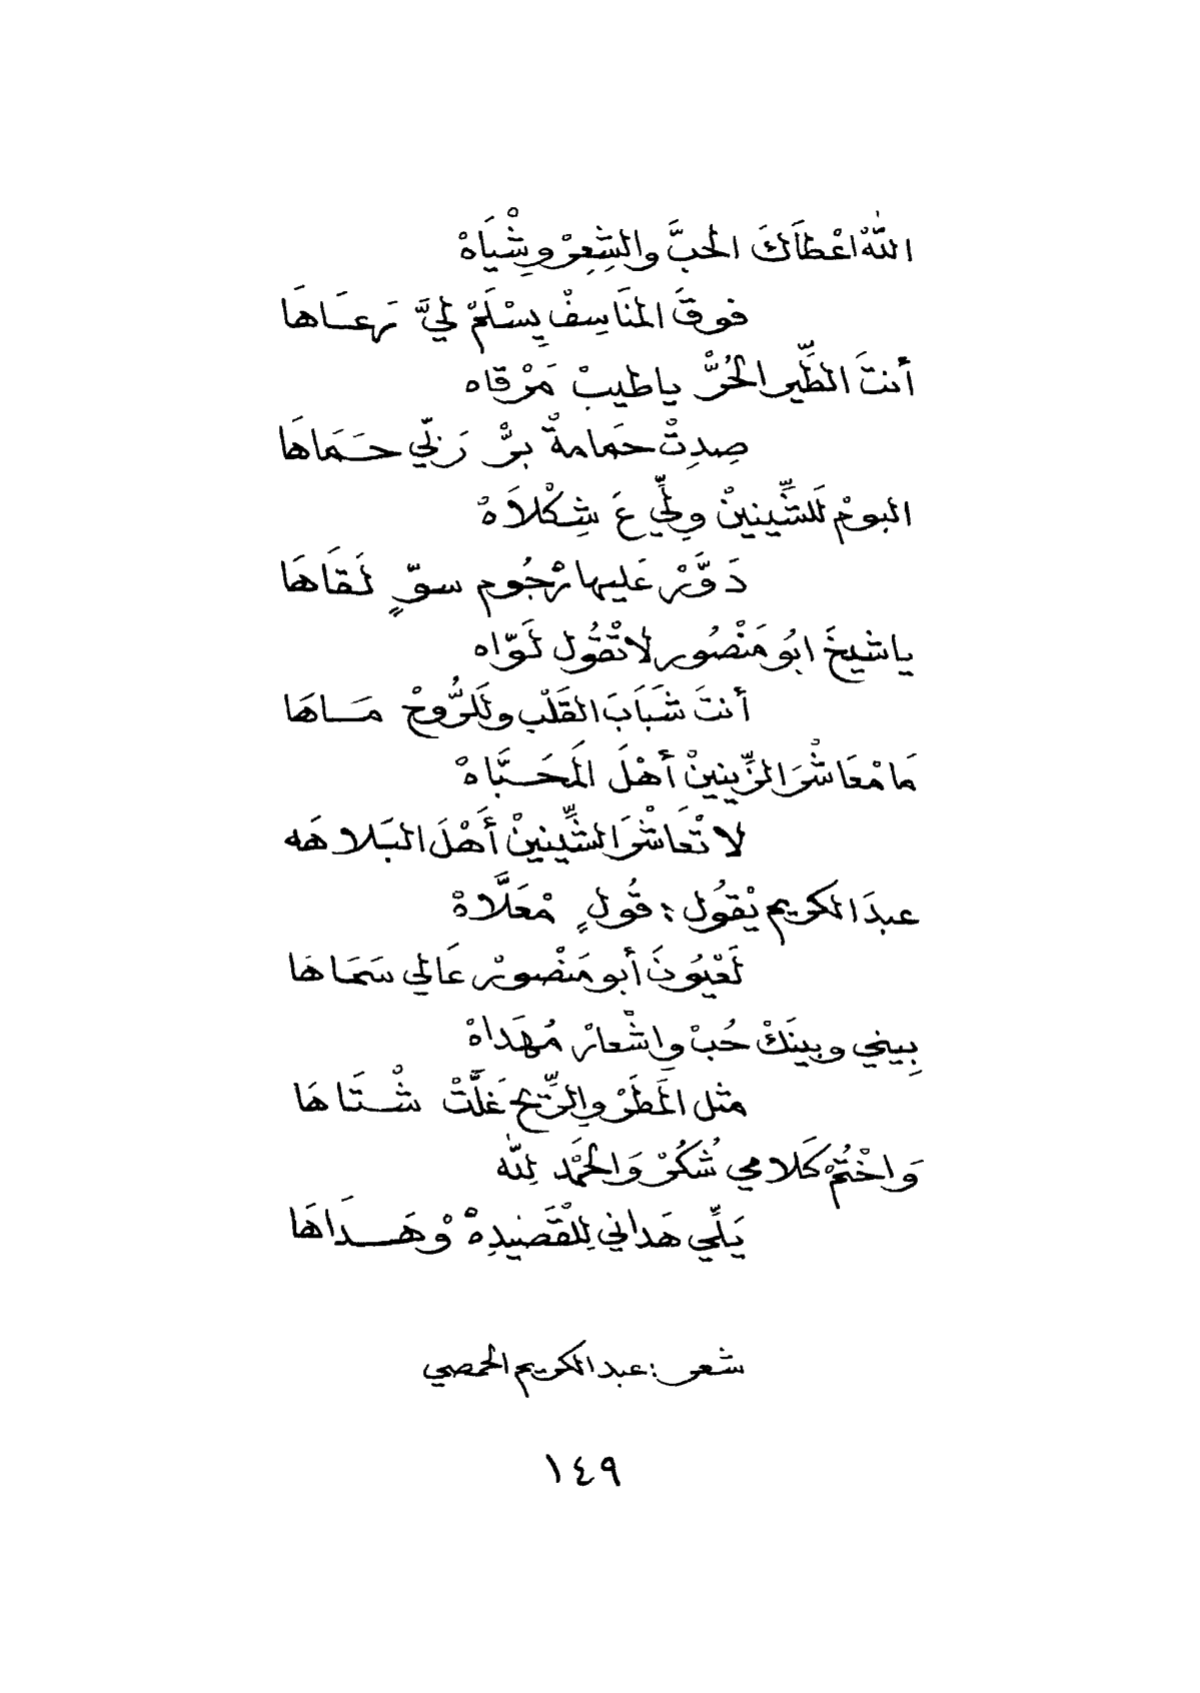 اللهْ اعْطَاكَ الحبَّ والشِعِرْ وِشْيَاهْ
فوقَ المنَاسِفْ يِسْلَمْ ليَّ رعَاهَا
أنتَ الطِّير الحُرّْ ياطيبْ مَرْقاه
صِدِتْ حمَامةْ برّْ رَبّي حمَاهَا
البومْ لَلشِّينينْ وِلِّي عَ شِكْلاَهْ
دَوَّرْ عَليها رْجُوم سوٍّ لَقَاهَا
ياشيخَ ابُو مَنْصُور لا تْقُول لَوّاه
أنتَ شَبَابَ القَلْب ولَلرُّوحْ مَاهَا
مَا مْعَاشْرَ الزِّينينْ أهْلَ المَحَبَّاهْ
لا تْعَاشْرَ الشِّينينْ أَهْلَ البَلاهَه
عبدَ الكريم يْقُول : قُولٍ مْعَلَّاهْ
لَعْيُونَ أبو مَنْصورْ عَالي سَمَاهَا
بِيني وبينَكْ حُبْ واشْعارْ مُهَداهْ
مثل المَطَرْ والرِّيح غَلَّتْ شْتَاهَا
وَاخْتُمْ كَلامي شُكُرْ وَالحَمْد لله
يَلِّي هَداني لِلْقَصيدِهْ وْهَدَاهَا
شعر : عبد الكريم الحمصي
١٤٩